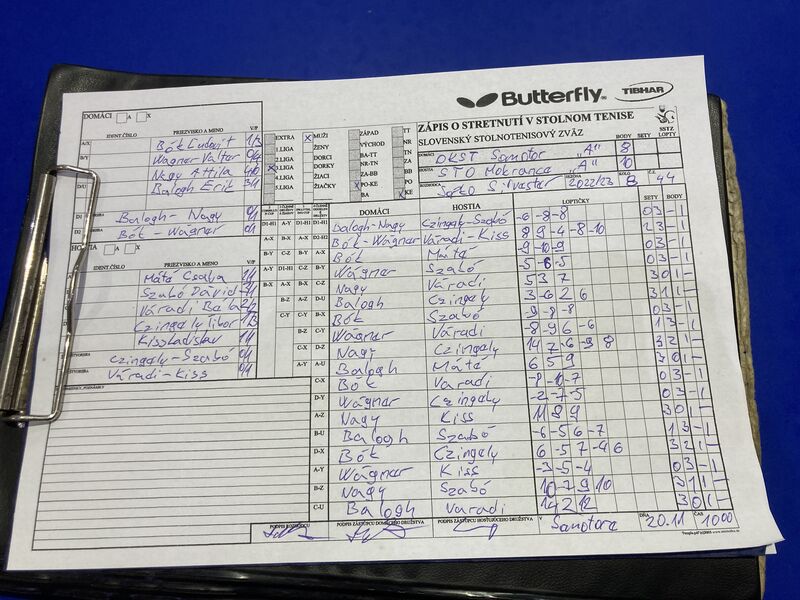 Butterfly TIBHAR
ZÁPIS O STRETNUTÍ V STOLNOM TENISE
SLOVENSKÝ STOLNOTENISOVÝ ZVÄZ
SSTZ
LOPTY
BODY SETY
DOMÁCI A X
IDENT.ČÍSLO PRIEZVISKO A MENO V/P
A/X Bók Ľudovít 1/3
B/Y Wagner Valter 0/4
Nagy Attila 4/0
D/U Balogh Erik 3/1
D1 Balogh - Nagy 0/1
D2 Bók - Wagner 0/1
HOSTIA A X
IDENT.ČÍSLO PRIEZVISKO A MENO V/P
Máté Csaba 1/1
Szabó Dávid
Váradi Béla 2/2
Czingely Tibor 1/3
Kiss Ladislav 1/1
Czingely - Szabó 0/1
Váradi - Kiss 0/1
EXTRA X MUŽI ZÁPAD TT
1.LIGA ŽENY VÝCHOD NR
2.LIGA DORCI BA-TT TN
3.LIGA DORKY NR-TN ZA
4.LIGA ŽIACI ZA-BB BB
5.LIGA ŽIAČKY PO-KE PO
BA KE
DOMÁCI OKST Šamotor "A" 8
HOSTIA STO Mokrance "A" 10
ROZHODCA SEZÓNA 2022/23 KOLO 8 Č.Z. 44
DOMÁCI HOSTIA LOPTIČKY SETY BODY
Balogh-Nagy Czingely-Szabó -6 -8 -8 0 3 - 1
Bók-Wágner Váradi-Kiss 8 9 -4 -8 -10 2 3 - 1
Bók Máté -9 -10 -9 0 3 - 1
Wágner Szabó -5 -6 -5 0 3 - 1
Nagy Váradi 5 3 7 3 0 1 -
Balogh Czingely -3 6 2 6 3 1 1 -
Bók Szabó -9 -8 -8 0 3 - 1
Wágner Váradi -8 -9 6 -6 1 3 - 1
Nagy Czingely
Balogh Máté 6 5 9 3 0 1 -
C-X Bók Varadi 0 3 - 1
D-Y Wágner Czingely -2 -7 -5 0 3 - 1
A-Z Nagy Kiss 11 8 9 3 0 1 -
B-U Balogh Szabó -6 -5 6 -7 1 3 - 1
D-X Bók Czingely 6 -5 7 -9 6 3 2 1 -
A-Y Wágner Kiss -3 -5 -4 0 3 - 1
B-Z Nagy Szabó 10 -7 9 10 3 1 1 -
C-U Balogh Varadi 14 2 12 3 0 1 -
PODPIS ROZHODCU PODPIS ZÁSTUPCU DOMÁCEHO DRUŽSTVA PODPIS ZÁSTUPCU HOSŤUJÚCEHO DRUŽSTVA V Šamotore DŇA 20.11 ČAS 10:00